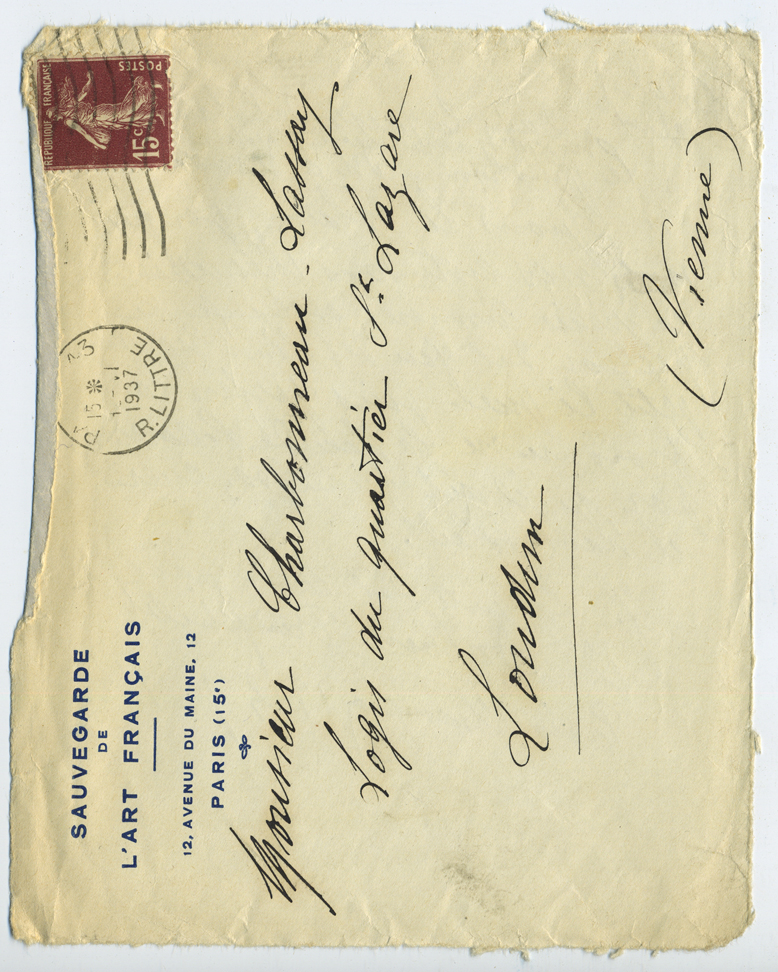 SAUVEGARDE
DE
L'ART FRANÇAIS
12, AVENUE DU MAINE, 12
PARIS (15ᵉ)
POSTES
RÉPUBLIQUE FRANÇAISE
15c
15 *
VI
1937
R. LITTRÉ
Monsieur Charbonneau-Lassay
Logis du quartier St. Lazare
Loudun
(Vienne)